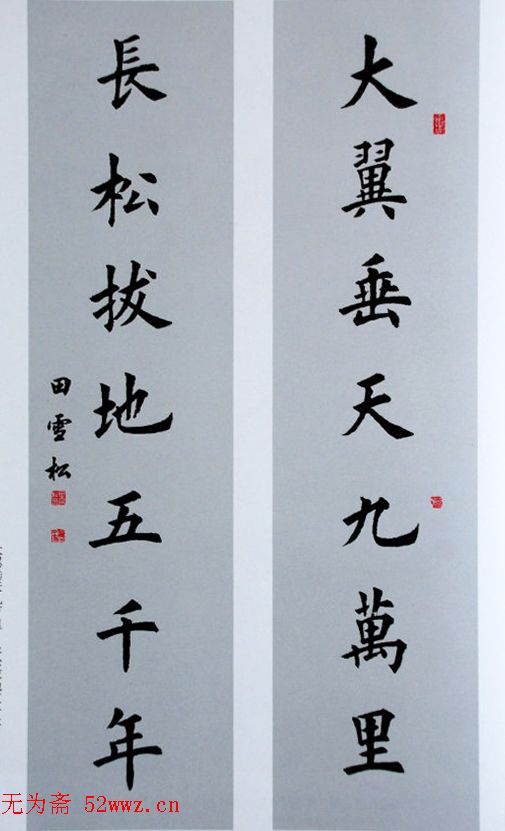 大翼垂天九萬里
長松拔地五千年
田雪松
无为斋 52wwz.cn